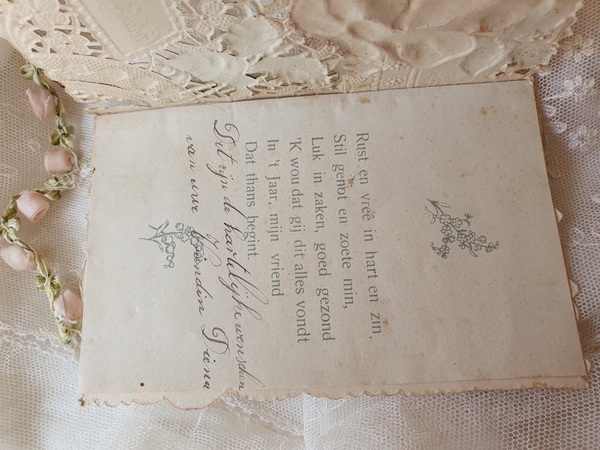 Rust en vreê in hart en zin,
Stil genot en zoete min,
Luk in zaken, goed gezond
'K wou dat gij dit alles vondt
In 't Jaar, mijn vriend
Dat thans begint.
Dit zijn de hartelijke wenschen
van uwe Vriendin Diena